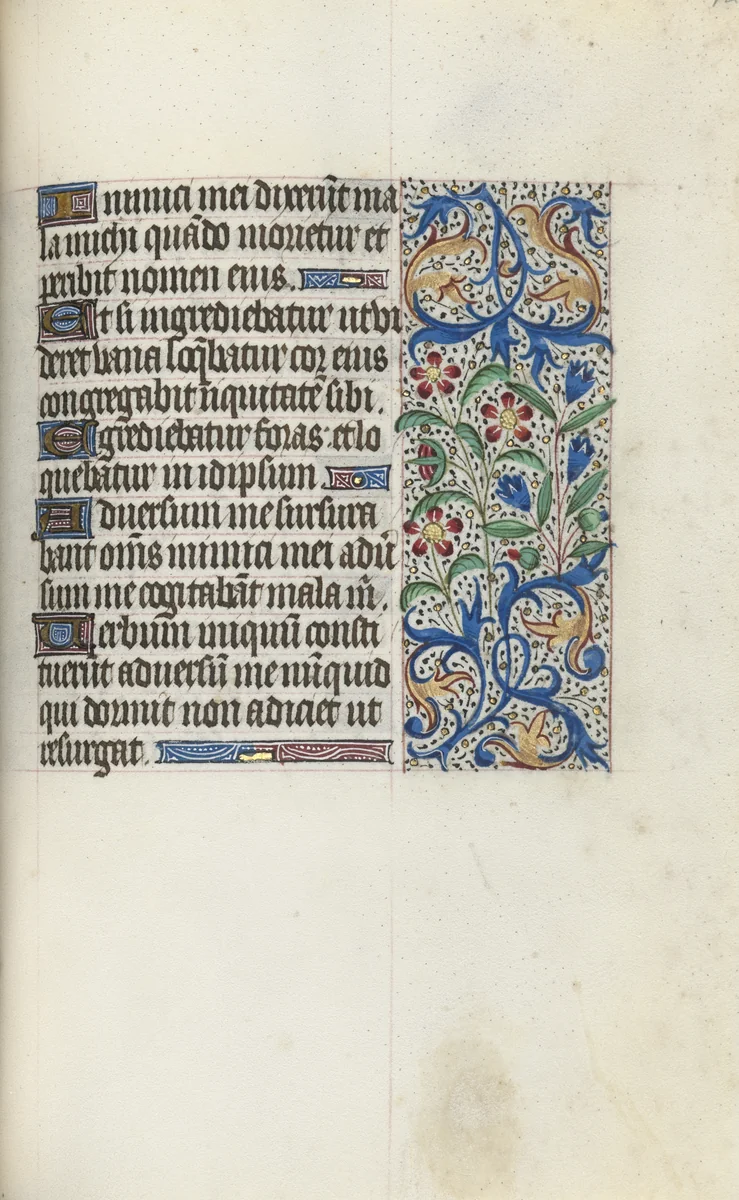 Inimici mei dixerūt ma
la michi quādo morietur et
peribit nomen eius.
Et si ingrediebatur ut vi
deret vana loq̄batur coꝛ eius
congregabit īiquitatē sibi.
Egrediebatur foras et lo
quebatur in idipsum
Aduersum me susurra
bant om̄s inimici mei adū
sum me cogitabāt mala m̄.
Verbum iniquū consti
tuerūt aduersū me nūquid
qui dormit non adiciet ut
resurgat.